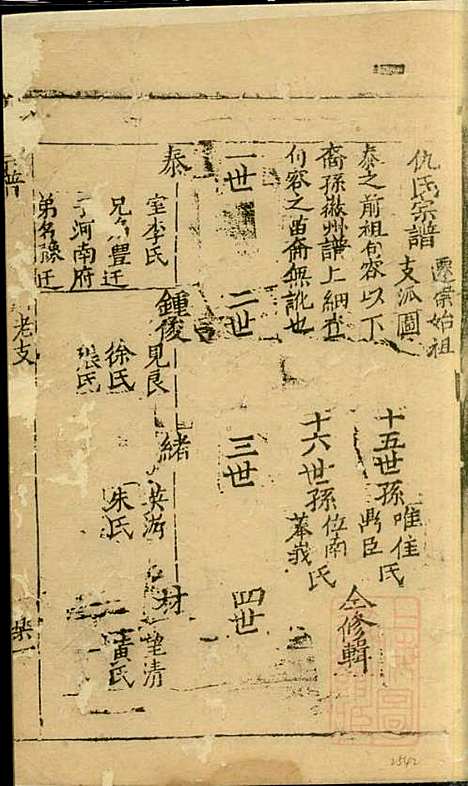 仇氏宗譜 遷柴始祖 支派圖
十五世孫 唯佳氏 鼎臣
十六世孫 位南氏 峯峩
仝修輯
泰之前祖句容以下
裔孫徽州譜上細查
句容之苗裔無訛也
一世 二世 三世 四世
泰 鍾俊 緒 材
室李氏 見良 英游 望清
兄名豐迁 徐氏 朱氏 黃氏
于河南府 張氏
弟名豫迁
宗譜 老支 柴一
2542